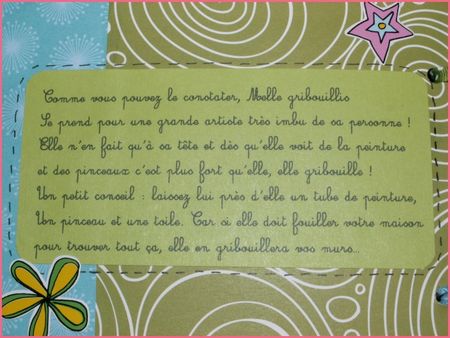 Comme vous pouvez le constater, Melle gribouillis
Se prend pour une grande artiste très imbu de sa personne !
Elle n'en fait qu'à sa tête et dès qu'elle voit de la peinture
et des pinceaux c'est plus fort qu'elle, elle gribouille !
Un petit conseil : laissez lui près d'elle un tube de peinture,
Un pinceau et une toile. Car si elle doit fouiller votre maison
pour trouver tout ça, elle en gribouillera vos murs...